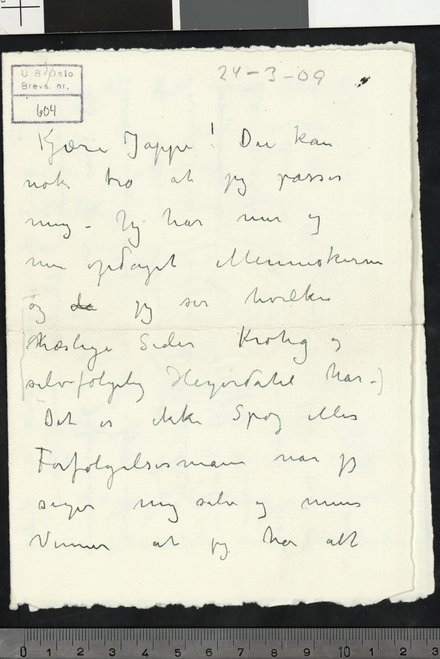 24-3-09
U. B. Oslo
Brevs. nr.
604
Kjære Jappe! Du kan
nok tro at jeg passer
mig - Jeg har nu og
nu opdaget Menneskerne
og da jeg ser hvilke
hæslige Sider Krohg og
selvfølgelig Heyerdahl har -)
Det er ikke Spøg eller
Forfølgelsesmani når jeg
siger mig selv og mine
Venner at jeg har alt
0 1 2 3 4 5 6 7 8 9 10 1 2 3